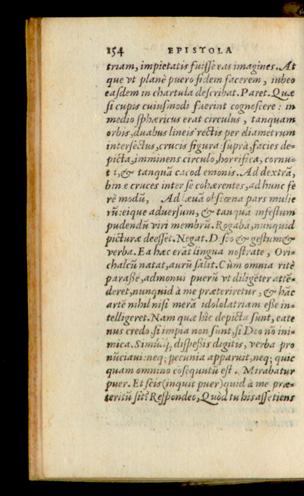 154 EPISTOLA
triam, impietatis fuisse eas imagines. At
que vt planè puero fidem facerem, iubeo
easdem in chartula describat. Paret. Quæ
si cupis cuiusmodi fuerint cognoscere: in
medio sphæricus erat circulus, tanquam
orbis, duabus lineis rectis per diametrum
intersectus, crucis figura: suprà, facies de-
picta, imminens circulo, horrifica, cornu-
&, tanquā cacodemonis. Ad dextrā,
binæ cruces inter se cohærentes, ad hunc fe
rè modū, Ad læuā obscœna pars mulie
rū: eique aduersum, & tanquā infestum
pudendū viri membrū. Rogabā, nunquid
picturæ deesset. Negat. Disco & gestum &
verba. Ea hæc erat lingua nostrate, Ori-
chalcū natat, aurū salit. Cùm omnia ritè
parasse, admonui puerū vt diligēter attē-
deret, nunquid à me præteriretur, & hāc
artē nihil nisi merā idololatriam esse in-
telligeret. Nam quæ hîc depicta sunt, eate
nus credo, si impia non sunt, si Deo nō ini-
mica. Simulq́, dispessis digitis, verba pro
nūciaui: neq; pecunia apparuit, neq; quic
quam omnino cosequutū est. Mirabatur
puer. Et scis (inquit puer) quid à me præ-
teritū sit? Respondeo, Quòd tu his assetiens